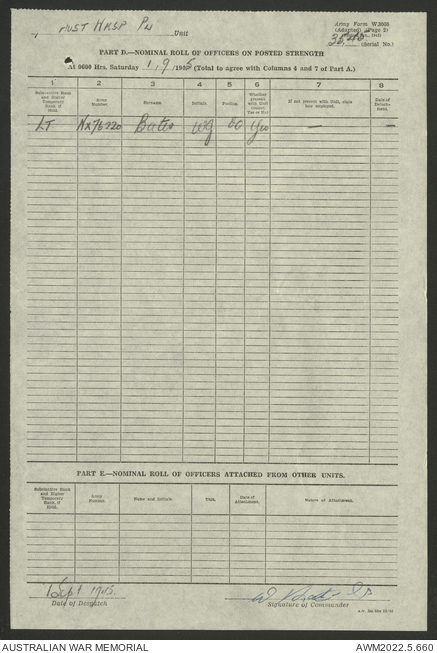 Aust WKSP PL Unit
Army Form W.3008
(Adapted) (Page 2)
(Serial No.)
PART D.—NOMINAL ROLL OF OFFICERS ON POSTED STRENGTH
At 0600 Hrs. Saturday 1/9/1945 (Total to agree with Columns 4 and 7 of Part A.)
1 2 3 4 5 6 7 8
Substantive Rank and Higher Temporary Rank if Held.
Army Number.
Surname.
Initials.
Posting.
Whether present with Unit (insert Yes or No)
If not present with Unit, state how employed.
Date of Detachment.
LT NX76220 Bates WG OC Yes — —
PART E.—NOMINAL ROLL OF OFFICERS ATTACHED FROM OTHER UNITS.
Substantive Rank and Higher Temporary Rank, if Held.
Army Number.
Name and Initials.
Unit.
Date of Attachment.
Nature of Attachment.
1 Sept 1945.
Date of Despatch
Signature of Commander
AUSTRALIAN WAR MEMORIAL
AWM2022.5.660